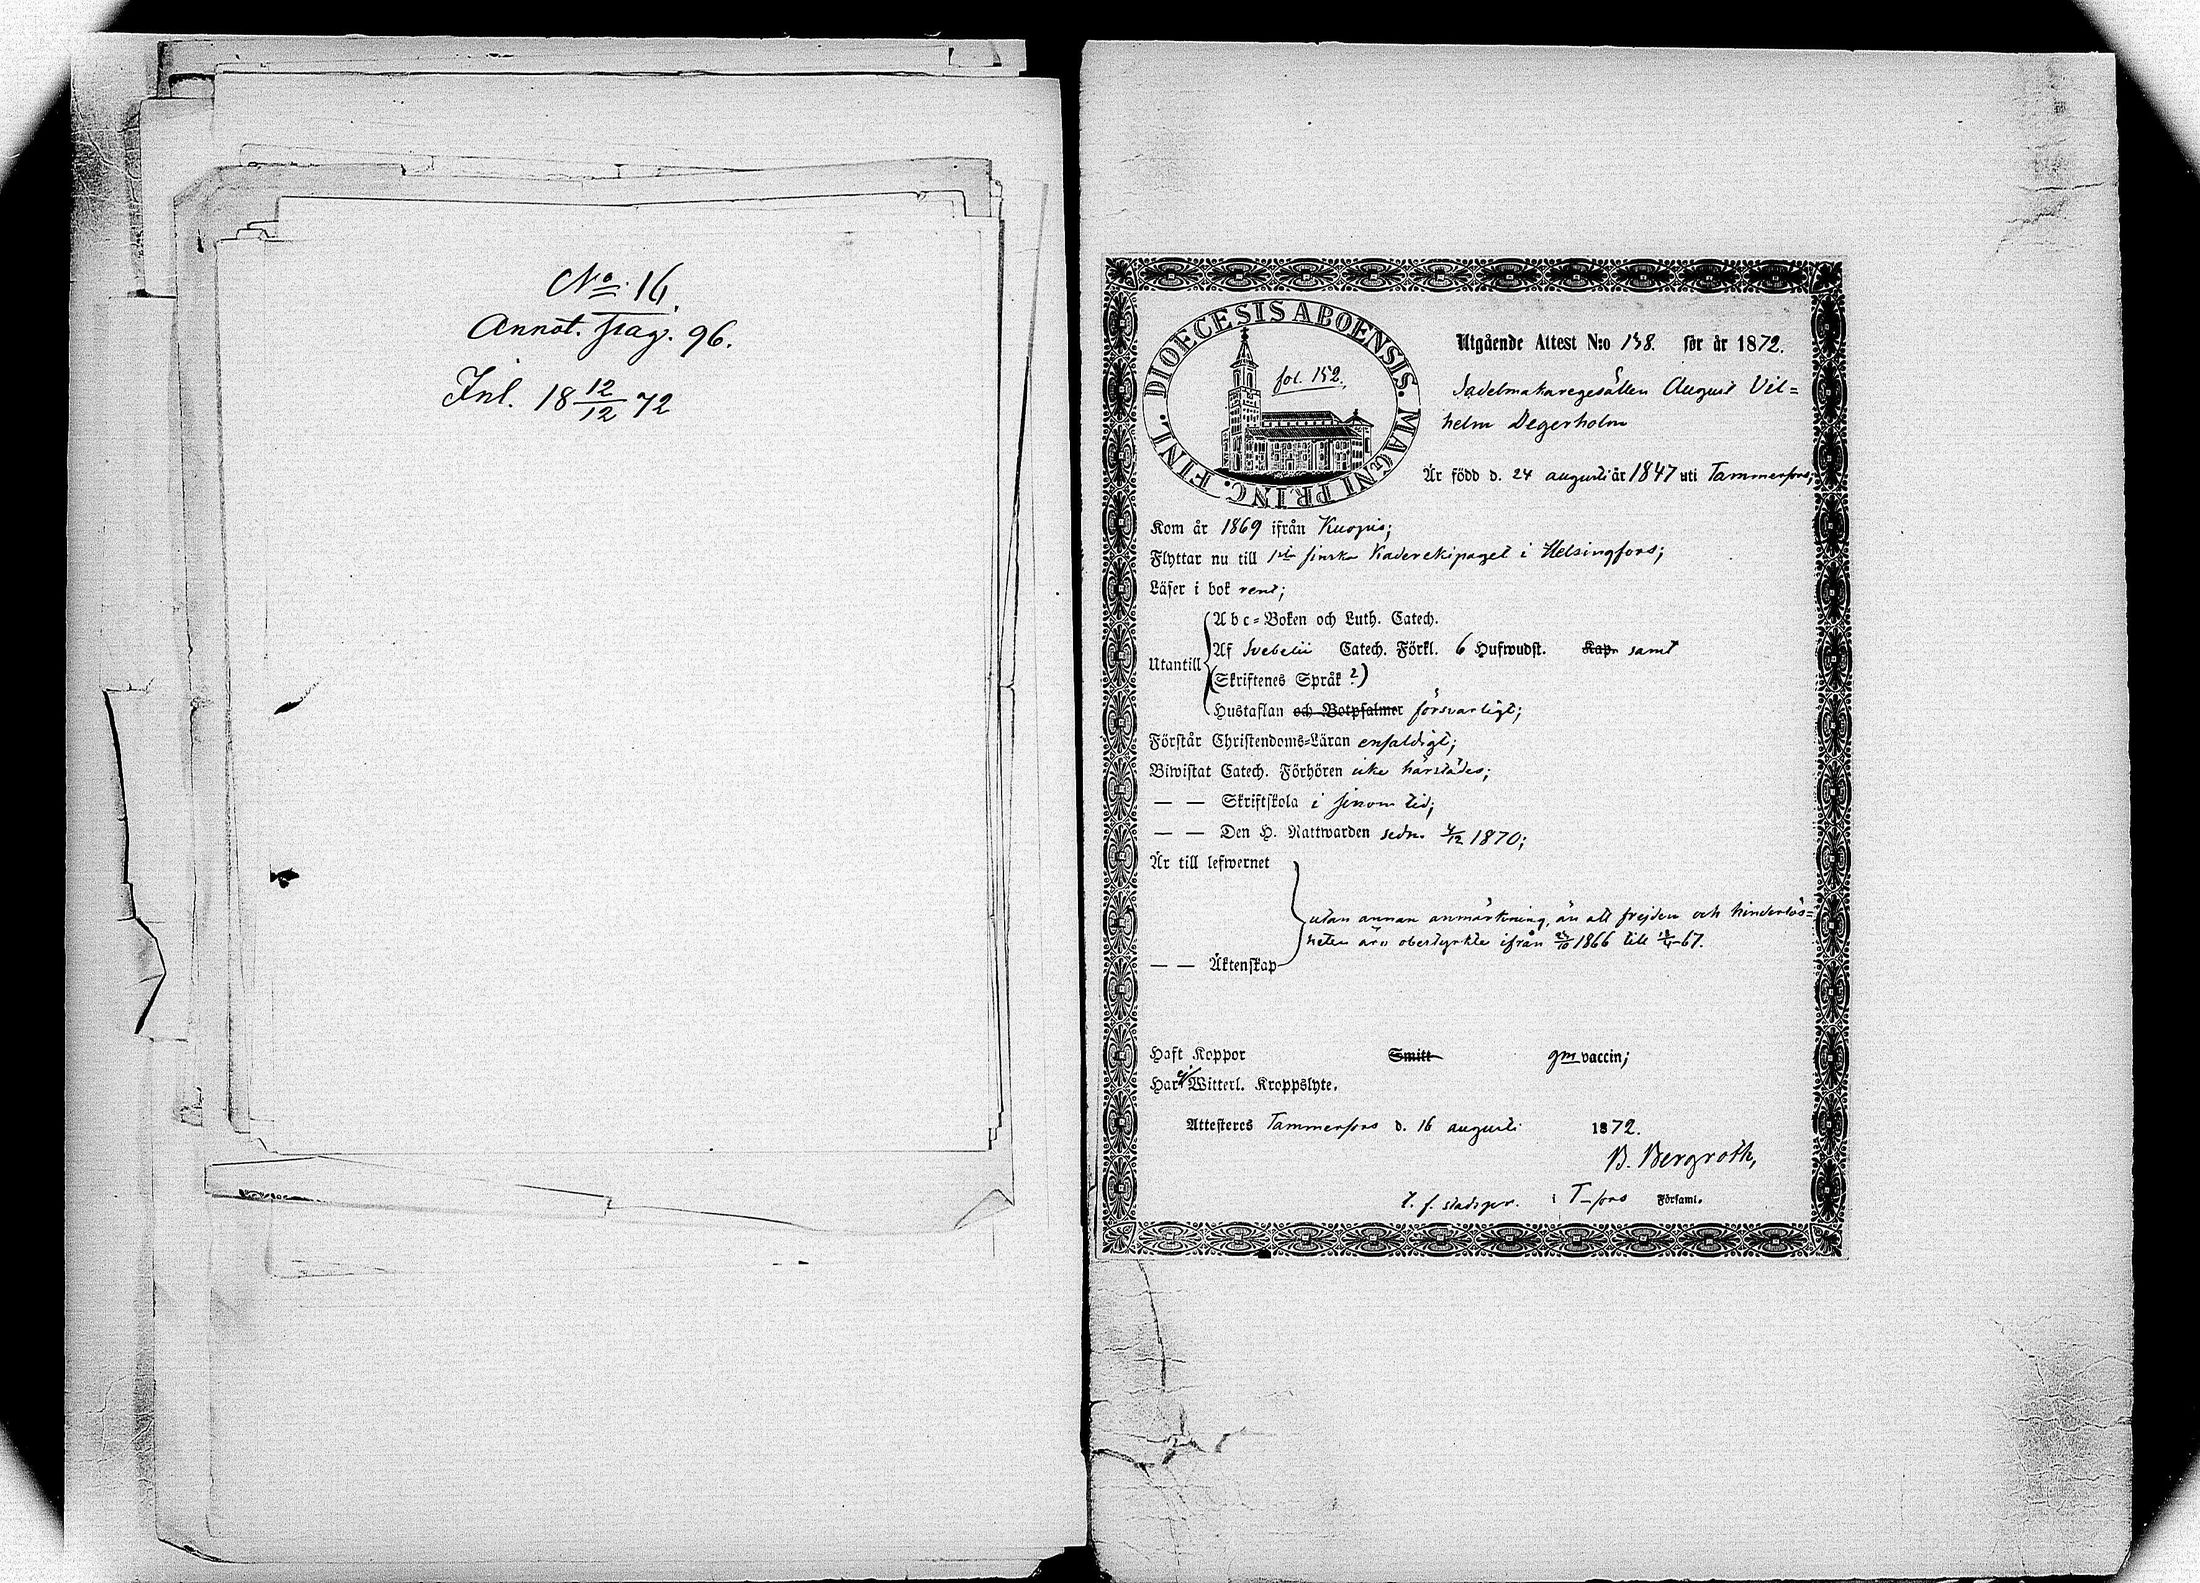 No. 16.
Annot. pag. 96.
Inl. 18 12/12 72
DIOECESIS ABOENSIS. MAGNI PRINC. FINL.
fol. 152.
Utgående Attest N:o 138. för år 1872.
Sadelmakaregesällen August Vil=
helm Degerholm
Är född d. 24 augusti år 1847 uti Tammerfors;
Kom år 1869 ifrån Kuopio;
Flyttar nu till 1sta finska Kaderekipaget i Helsingfors;
Läser i bok rent;
Abc=Boken och Luth. Catech.
Utantill
Af Svebelii Catech. Förkl. 6 Hufwudst. Kap. samt
(Skriftenes Språk ?)
Hustaflan och Botpsalmer försvarligt;
Förstår Christendoms=Läran enfaldigt;
Biwistat Catech. Förhören icke härstädes;
— — Skriftskola i sinom tid;
— — Den H. Nattwarden sedn. 4/12 1870;
Är till lefwernet
utan annan anmärkning, än att frejden och hinderlös=
heten äro obestyrkte ifrån 1866 till 67.
— — Äktenskap
Haft Koppor Smitt gm vaccin;
Har ej Witterl. Kroppslyte.
Attesteres Tammerfors d. 16 augusti 1872.
B. Bergroth,
t. f. stadspr. i T–fors Församl.